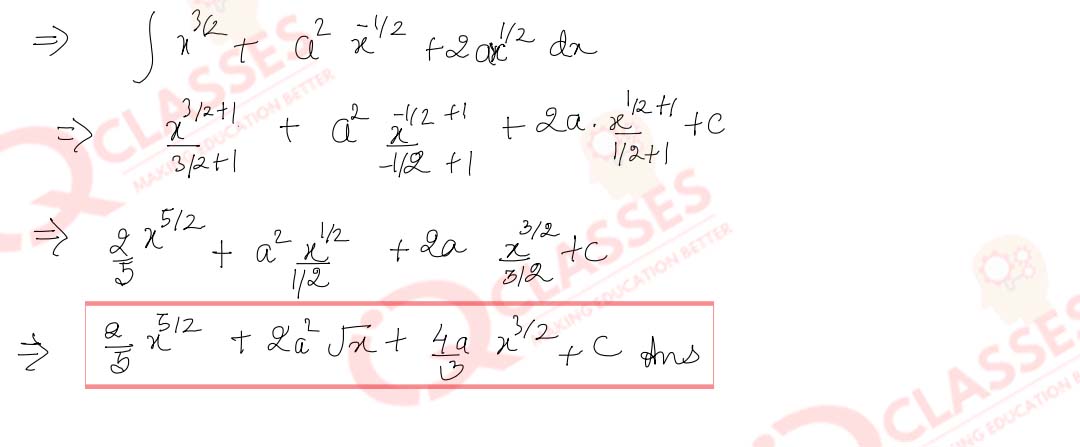 ⇒ ∫ x^{3/2} + a^2 x^{-1/2} + 2ax^{1/2} dx
⇒ x^{3/2+1}/(3/2+1) + a^2 x^{-1/2+1}/(-1/2+1) + 2a · x^{1/2+1}/(1/2+1) + c
⇒ 2/5 x^{5/2} + a^2 x^{1/2}/(1/2) + 2a x^{3/2}/(3/2) + c
⇒ 2/5 x^{5/2} + 2a^2 √x + 4a/3 x^{3/2} + C Ans
CLASSES
MAKING EDUCATION BETTER
CLASSES
MAKING EDUCATION BETTER
CLASSES
EDUCATION BETTER